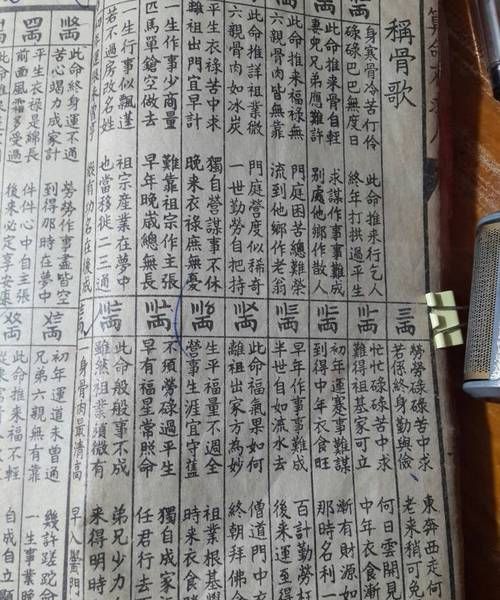 稱骨歌
身寒骨冷苦行伶 此命推來行乞人
碌碌巴巴無度日 終年打拱過平生
此命推來骨自輕 求謀作事事難成
妻兒兄弟應難許 別處他鄉作散人
此命推來福祿無 門庭困苦總難榮
六親骨肉皆無靠 流到他鄉作老翁
此命推詳祖業微 門庭營度似稀奇
六親骨肉如冰炭 一世勤勞自把持
平生衣祿苦中求 獨自營謀事不休
離祖出門宜早計 晚來衣祿庶無憂
一生作事少商量 難靠祖宗作主張
匹馬單鎗空做去 早年晚歲總無長
一生行事似飄蓬 祖宗產業在夢中
若不過房改名姓 也當移徙二三通
此命終身運不通 勞勞作事盡皆空
苦心竭力成家計 到得那時在夢中
平生衣祿是綿長 件件心中自主張
前面風霜多受過 後來必定享安康
勞勞碌碌苦中求 東奔西走何
若係終身勤與儉 老來稍可免
忙忙碌碌苦中求 何日雲開見
難得祖基家可立 中年衣食漸
初年運蹇事難謀 漸有財源如
到得中年衣食旺 那時名利一
早年作事事難成 百計勤勞
半世自如流水去 後來運至得
此命福氣果如何 僧道門中衣
離祖出家方為妙 終朝拜佛念
生平福量不週全 祖業根基覺
營事生涯宜守舊 時來衣食
不須勞碌過平生 獨自成家
早有福星常照命 任君行去
此命般般事不成 弟兄少力
雖然祖業須微有 來得明時
身骨肉最清高 早入黌門
初年運道未曾通 幾許蹉跎命
兄弟六親無有靠 一生事業晚
此命推來福不輕 自成自立顯